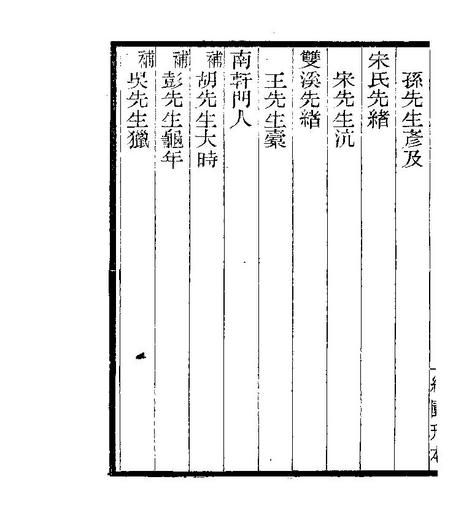 孫先生彥及
宋氏先緒
宋先生沆
雙溪先緒
王先生豪
南軒門人
補 胡先生大時
補 彭先生龜年
補 吳先生獵